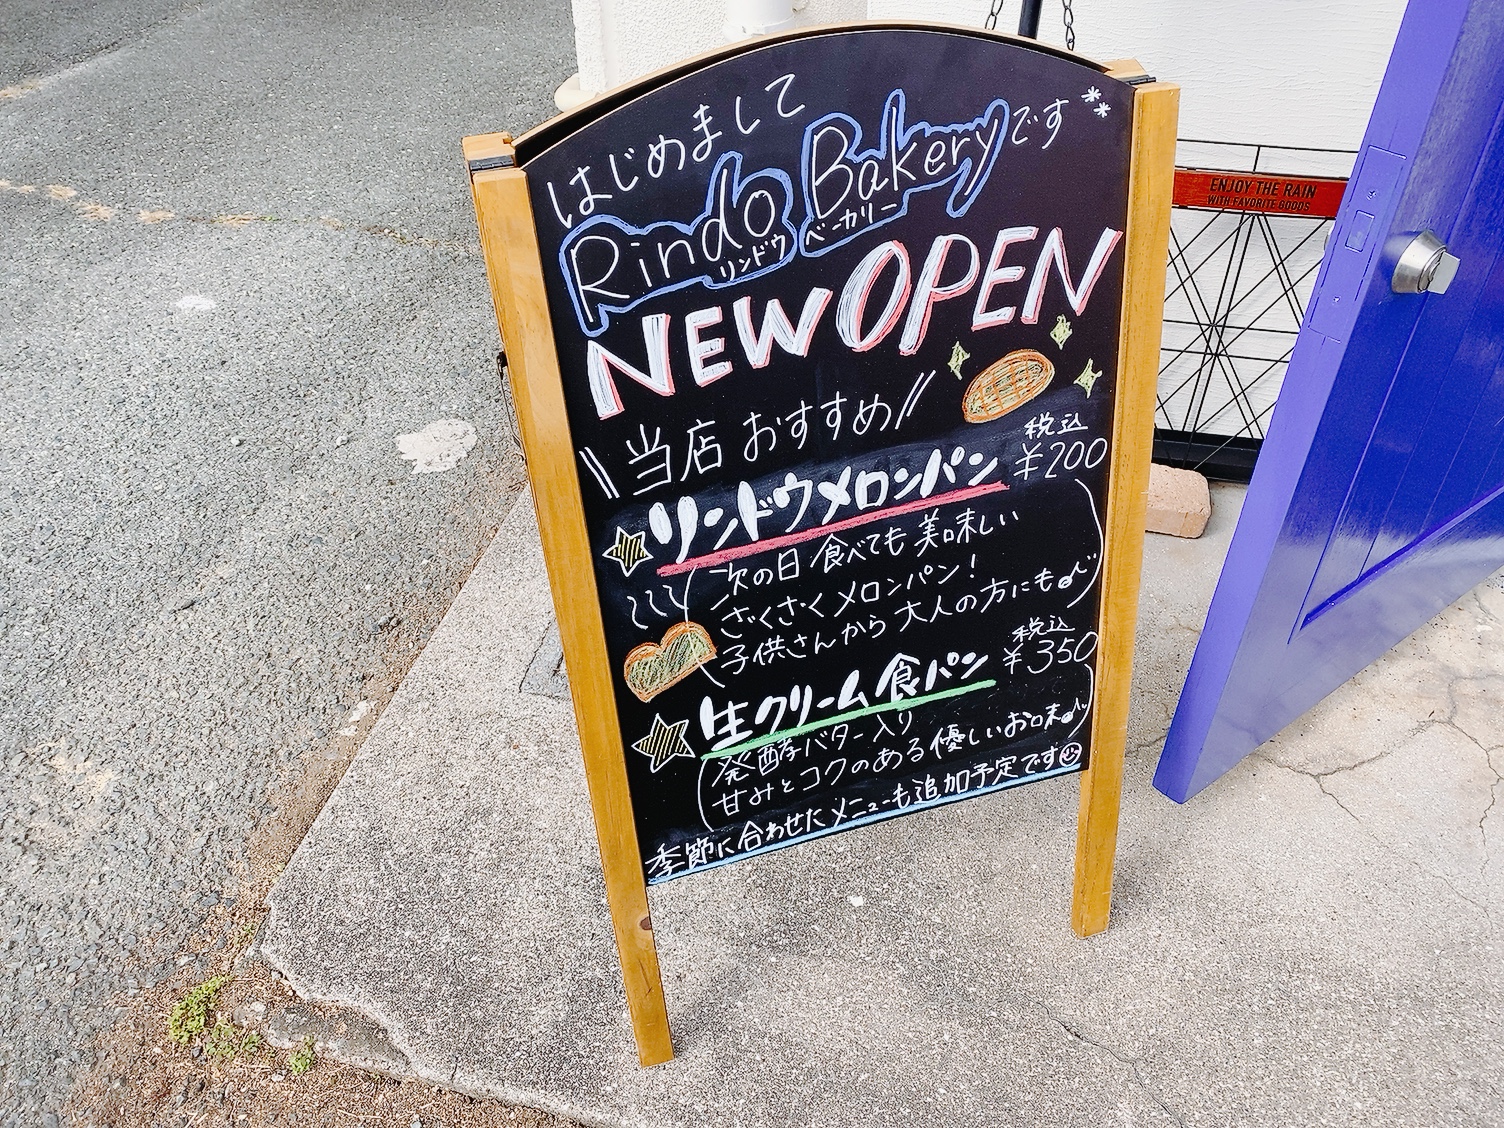 はじめまして
Rindo Bakeryです**
リンドウ ベーカリー
NEW OPEN
\\当店おすすめ//
税込
☆リンドウメロンパン ¥200
(次の日食べても美味しい
ざくざくメロンパン!
子供さんから大人の方にも♪)
税込
☆生クリーム食パン ¥350
(発酵バター入り
甘みとコクのある優しいお味♪)
季節に合わせたメニューも追加予定です☺
ENJOY THE RAIN
WITH FAVORITE GOODS